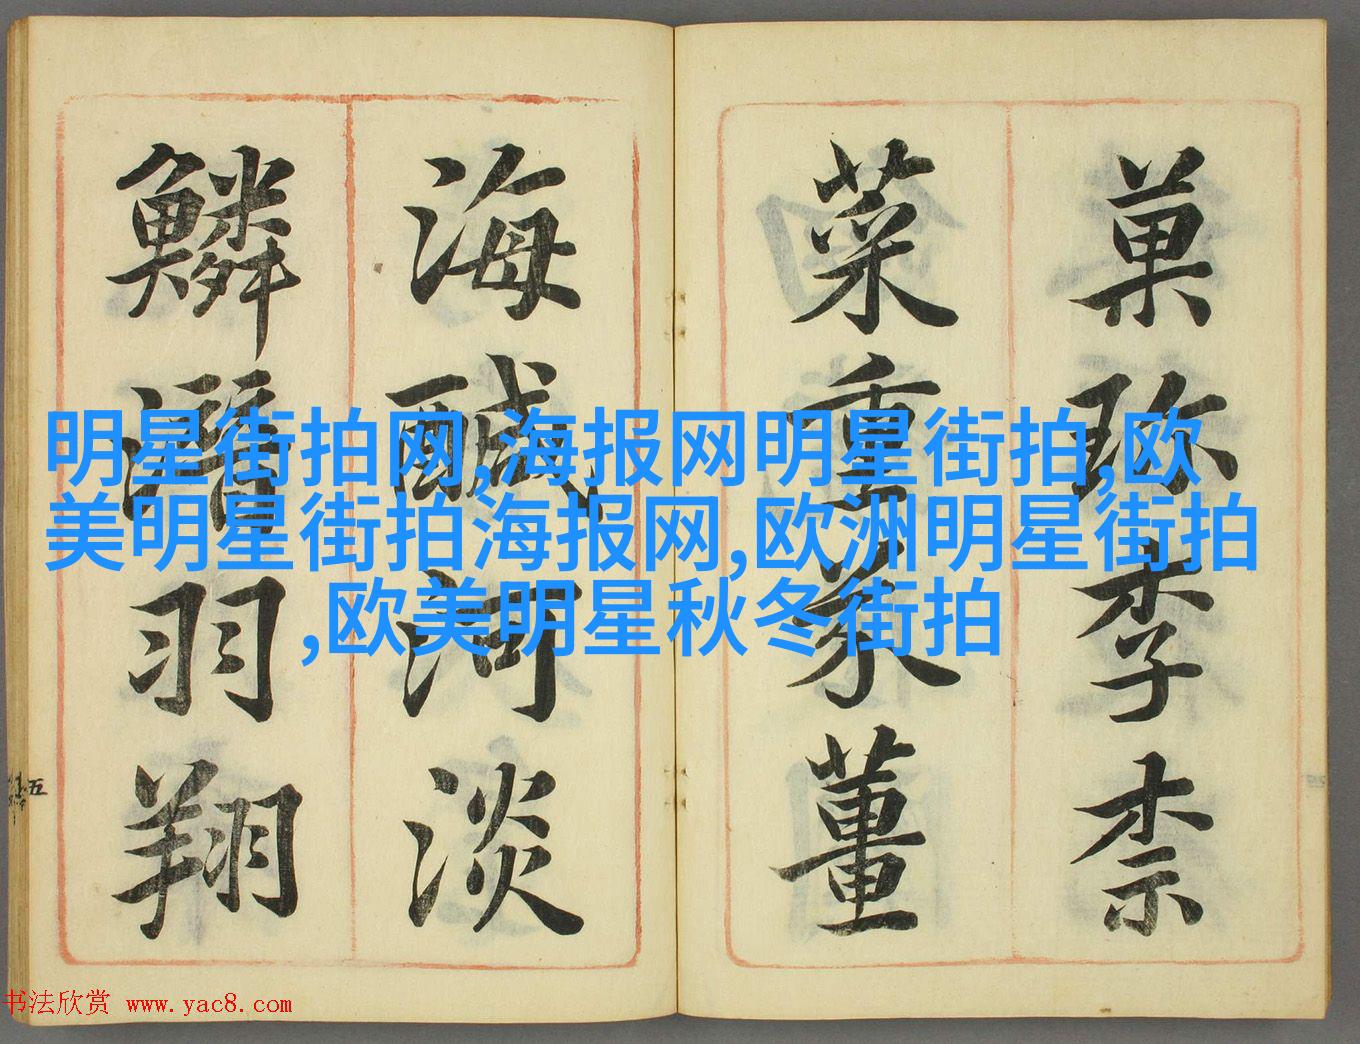 菓珍李柰
菜重芥薑
海醎河淡
鱗潛羽翔
五
明星街拍网,海报网明星街拍,欧
美明星街拍海报网,欧洲明星街拍
,欧美明星秋冬街拍
书法欣赏 www.yac8.com